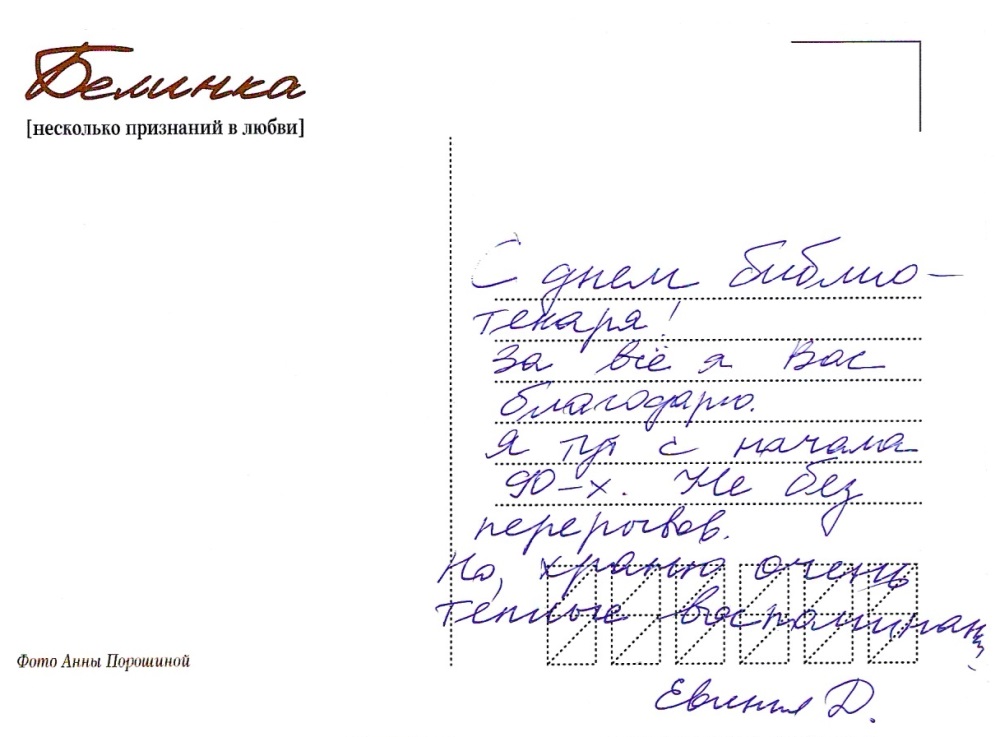 Белинка
[несколько признаний в любви]
С днем библио-
текаря!
За всё я Вас
благодарю.
Я тут с начала
90-х. Не без
перерывов.
Но, храню очень
теплые воспоминания.
Фото Анны Порошиной
Евгения Д.